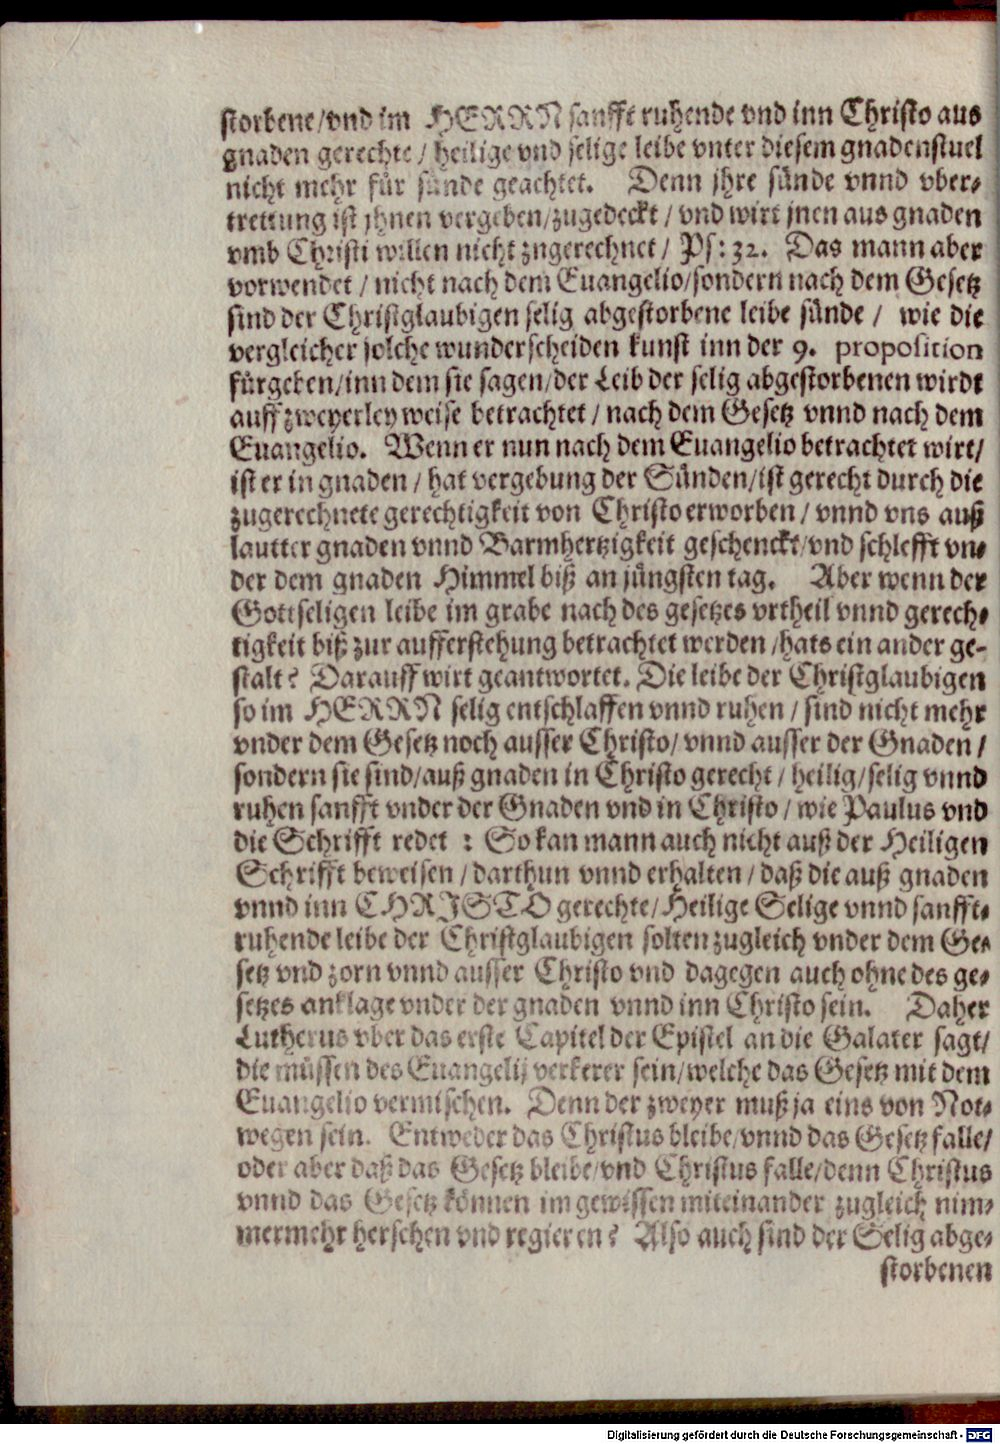 storbene/vnd im HERRN sanfft ruhende vnd inn Christo aus
gnaden gerechte / heilige vnd selige leibe vnter diesem gnadenstuel
nicht mehr für sünde geachtet. Denn jhre sünde vnnd vber⸗
trettung ist jhnen vergeben/zugedeckt / vnd wirt jnen aus gnaden
vmb Christi willen nicht zugerechnet / Ps: 32. Das mann aber
vorwendet / nicht nach dem Euangelio/sondern nach dem Gesetz
sind der Christglaubigen selig abgestorbene leibe sünde / wie die
vergleicher solche wunderscheiden kunst inn der 9. proposition
fürgeben/inn dem sie sagen/der Leib der selig abgestorbenen wirdt
auff zweyerley weise betrachtet / nach dem Gesetz vnnd nach dem
Euangelio. Wenn er nun nach dem Euangelio betrachtet wirt/
ist er in gnaden / hat vergebung der Sünden/ist gerecht durch die
zugerechnete gerechtigkeit von Christo erworben / vnnd vns auß
lautter gnaden vnnd Barmhertzigkeit geschenckt/vnd schlefft vn⸗
der dem gnaden Himmel biß an jüngsten tag. Aber wenn der
Gottseligen leibe im grabe nach des gesetzes vrtheil vnnd gerech⸗
tigkeit biß zur aufferstehung betrachtet werden /hats ein ander ge-
stalt? Darauff wirt geantwortet. Die leibe der Christglaubigen
so im HERRN selig entschlaffen vnnd ruhen / sind nicht mehr
vnder dem Gesetz noch ausser Christo/ vnnd ausser der Gnaden /
sondern sie sind/auß gnaden in Christo gerecht / heilig/selig vnnd
ruhen sanfft vnder der Gnaden vnd in Christo / wie Paulus vnd
die Schrifft redet : So kan mann auch nicht auß der Heiligen
Schrifft beweisen / darthun vnnd erhalten / daß die auß gnaden
vnnd inn CHRISTO gerechte/Heilige Selige vnnd sanfft⸗
ruhende leibe der Christglaubigen solten zugleich vnder dem Ge⸗
setz vnd zorn vnnd ausser Christo vnd dagegen auch ohne des ge⸗
setzes anklage vnder der gnaden vnnd inn Christo sein. Daher
Lutherus vber das erste Capitel der Epistel an die Galater sagt/
die müssen des Euangelij verkerer sein/welche das Gesetz mit dem
Euangelio vermischen. Denn der zweyer muß ja eins von Not⸗
wegen sein. Entweder das Christus bleibe/vnnd das Gesetz falle/
oder aber daß das Gesetz bleibe/vnd Christus falle/denn Christus
vnnd das Gesetz können im gewissen miteinander zugleich nim⸗
mermehr herschen vnd regieren? Also auch sind der Selig abge⸗
storbenen
Digitalisierung gefördert durch die Deutsche Forschungsgemeinschaft - DFG